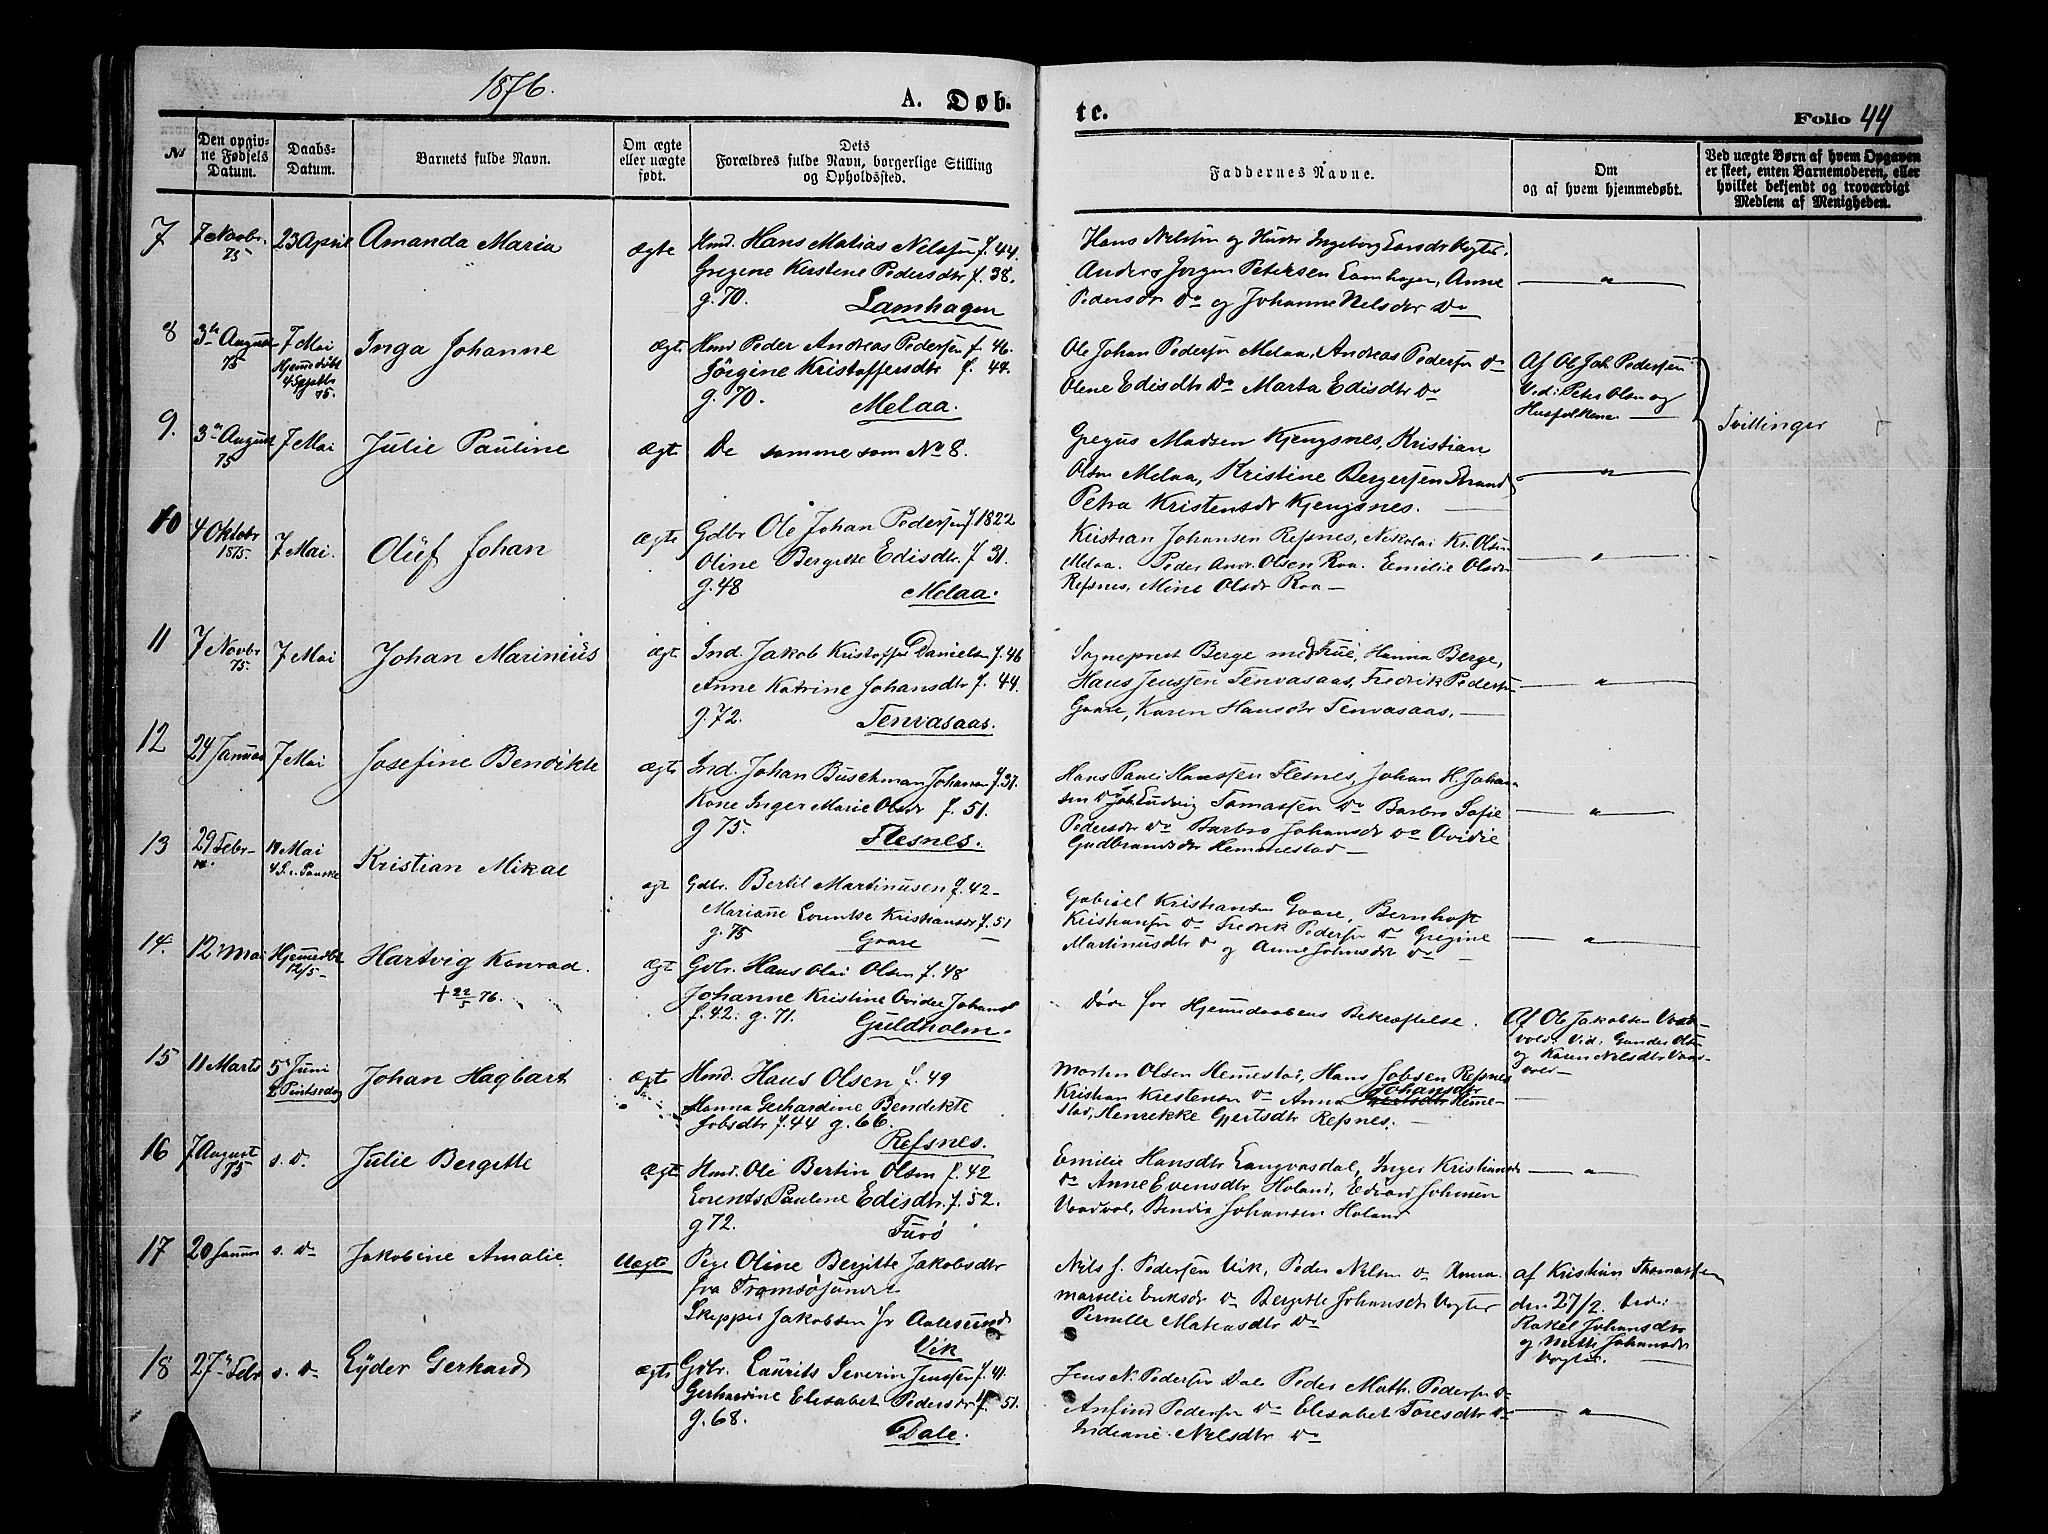 1876.
A. Døb-
te.
Folio 44
No
Den opgiv-
ne Fødsels
Datum.
Daabs-
Datum.
Barnets fulde Navn.
Om ægte
eller uægte
født.
Dets
Forældres fulde Navn, borgerlige Stilling
og Opholdssted.
Faddernes Navne.
Om
og af hvem hjemmedøbt.
Ved uægte Børn af hvem Opgaven
er skeet, enten Barnemoderen, eller
hvilket bekjendt og troværdigt
Medlem af Menigheden.
7
7 Novbr.
75
23 April
Amanda Maria
ægte
Hmd. Hans Matias Nilssen f. 44.
Gregine Kirstine Pedersdtr f. 38.
g. 70. Lamhagen
Hans Nelssen og Hustr Ingeborg Larsdr Vogter
Anders Jørgen Petersen Lamhagen, Anne
Pedersdr do og Johanne Nelsdtr do
"
8
3de August
75
7 Mai
Hjemmedøbt
4 Septbr
75.
Inga Johanne
ægte
Hmd Peder Andreas Pedersen f. 46.
Jørgine Kristoffersdtr f. 44.
g. 70. Melaa.
Ole Johan Pedersen Melaa, Andreas Pedersen do
Olene Edisdtr do Marta Edisdtr do
Af Ole Joh. Pedersen
Vid: Peter Olsen og
Husfolkene
9.
3de August
75
7 Mai
Julie Pauline
ægte
De samme som No 8.
Gregus Madsen Kjengsnes, Kristian
Olsen Melaa, Kristine Bergersen Strand
Petra Kristensdr Kjengsnes.
"
Tvillinger
10
4 Oktobr
1875.
7 Mai.
Oluf Johan
ægte
Gdbr Ole Johan Pedersen f 1822
Oline Bergitte Edisdtr. f 31.
g. 48 Melaa.
Kristian Johansen Refsnes, Nikolai Kr. Olsen
Melaa. Peder Andr. Olsen Roa. Emilie Olsdr
Refsnes, Mine Olsdr Roa
"
11
7 Novbr
75.
7 Mai
Johan Marinius
ægt.
Ind. Jakob Kristoffer Danielsen f. 46
Anne Katrine Johansdtr f. 44.
g. 72. Tenvasaas.
Sogneprest Berge med Frue, Hanna Berge,
Hans Jenssen Tenvasaas, Fredrik Pedersen
Gaare, Karen Hansdtr Tenvasaas.
"
12
24 Januar
7 Mai
Josefine Bendikte
ægte
Ind. Johan Buschman Johansen f. 37.
Kone Inger Marie Olsdr f. 51.
g 75. Flesnes.
Hans Pauli Hanssen Flesnes, Johan H. Johan-
sen do Joh. Ludvig Tomassen do Barbro Sofie
Pedersdtr do Barbro Johansdr do Ovidie
Gudbrandsdr Hemmestad
"
13
29 Febr
14 Mai
4 S. e. Paaske
Kristian Mikal
ægt
Gdbr. Bertil Martinusen f. 42
Mariane Lorentse Kristiansdr f. 51
g. 75 Gaare
Gabriel Kristiansen Gaare, Bernhoft
Kristiansen do Fredrik Pedersen do Gregine
Martinusdtr do og Anne Johnsdtr do
"
14.
12 Mai
Hjemmedøbt
12/5
Hartvig Konrad.
+ 22/5 76.
ægt
Gdbr. Hans Olai Olsen f. 48
Johanne Kristine Ovidie Johansd
f. 42. g. 71. Guldholm.
Døde før Hjemmedaabens Bekræftelse.
Af Ole Jakobsen Vaad-
vold. Vid: Gunder Olsen
og Karen Nilsdtr Vaad-
vold
15
11 Marts
5te Juni
2 Pintsedag
Johan Hagbart
ægte
Hmd. Hans Olsen f. 49
Hanna Gerhardine Bendikte
Jobsdtr f. 44 g. 66.
Refsnes.
Morten Olsen Hemestad, Hans Jobsen Refsnes
Kristian Krestensen do Anna Johansdtr Heme-
stad, Henrekke Gjertsdtr Refsnes.
16
7 August
75
s. D.
Julie Bergitte
ægte
Hmd. Ole Bertin Olsen f. 42
Lorents. Pauline Edisdtr. f. 52.
g 72. Furø
Emilie Hansdtr Langvasdal, Inger Kristiansdr
do Anne Evensdtr Holand, Edvard Johnsen
Vaadvol, Bendix Johansen Holand
"
17
20 Januar
s. D
Jakobine Amalie.
Uægte
Pige Oline Bergitte Jakobsdtr
fra Tromsøsundet
Skipper Jakobsen fr Aalesund
Vik
Nils J. Pedersen Vik, Peder Nelsen do Anna
Marselie Eriksdr do Bergitte Johansdr Vogter
Pernille Mateasdtr do
af Kristian Thomassen
den 27/2. Vid:
Rakel Johansdtr
og Mette Johansdr
Vogter.
18
27de Febr
s. D
Eyder Gerhard
ægte
Gdbr. Laurits Severin Jenssen f. 41.
Gerhardine Elisabet Pedersdr f. 51.
g. 68. Dale.
Jens N. Pedersen Dale Peder Math. Pedersen do
Anfind Pedersen do Elisabet Toresdtr do
Indiane Nelsdtr do
"